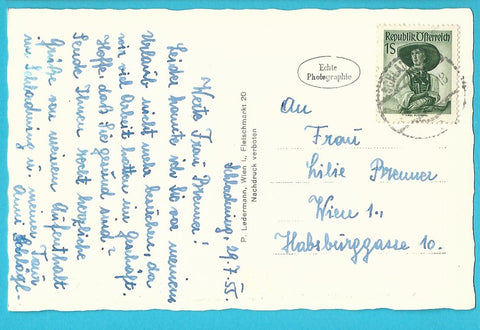 Schladming, 29.7.55
Werte Frau Brenner!
Leider konnte ich Sie vor meinem
Urlaub nicht mehr besuchen, da
wir viel Arbeit hatten im Geschäft.
Hoffe, daß Sie gesund sind?
Sende Ihnen recht herzliche
Grüße von meinem Aufenthalt
in Schladming u. meiner Tour
Anni
P. Ledermann, Wien I., Fleischmarkt 20
Nachdruck verboten
Echte
Photographie
Republik Österreich
1S
An
Frau
Lilie Brenner
Wien 1.,
Habsburggasse 10.